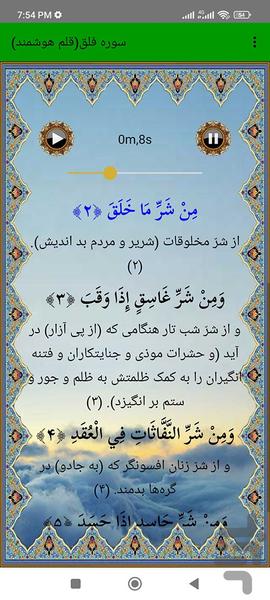 7:54 PM
سوره فلق(قلم هوشمند)
0m,8s
مِنْ شَرِّ مَا خَلَقَ ﴿۲﴾
از شرّ مخلوقات (شریر و مردم بد اندیش).
(۲)
وَمِنْ شَرِّ غَاسِقٍ إِذَا وَقَبَ ﴿۳﴾
و از شرّ شب تار هنگامی که (از پی آزار) در
آید (و حشرات موذی و جنایتکاران و فتنه
انگیران را به کمک ظلمتش به ظلم و جور و
ستم بر انگیزد). (۳)
وَمِنْ شَرِّ النَّفَّاثَاتِ فِي الْعُقَدِ ﴿۴﴾
و از شرّ زنان افسونگر که (به جادو) در
گره‌ها بدمند. (۴)
وَمِنْ شَرِّ حَاسِدٍ إِذَا حَسَدَ ﴿۵﴾